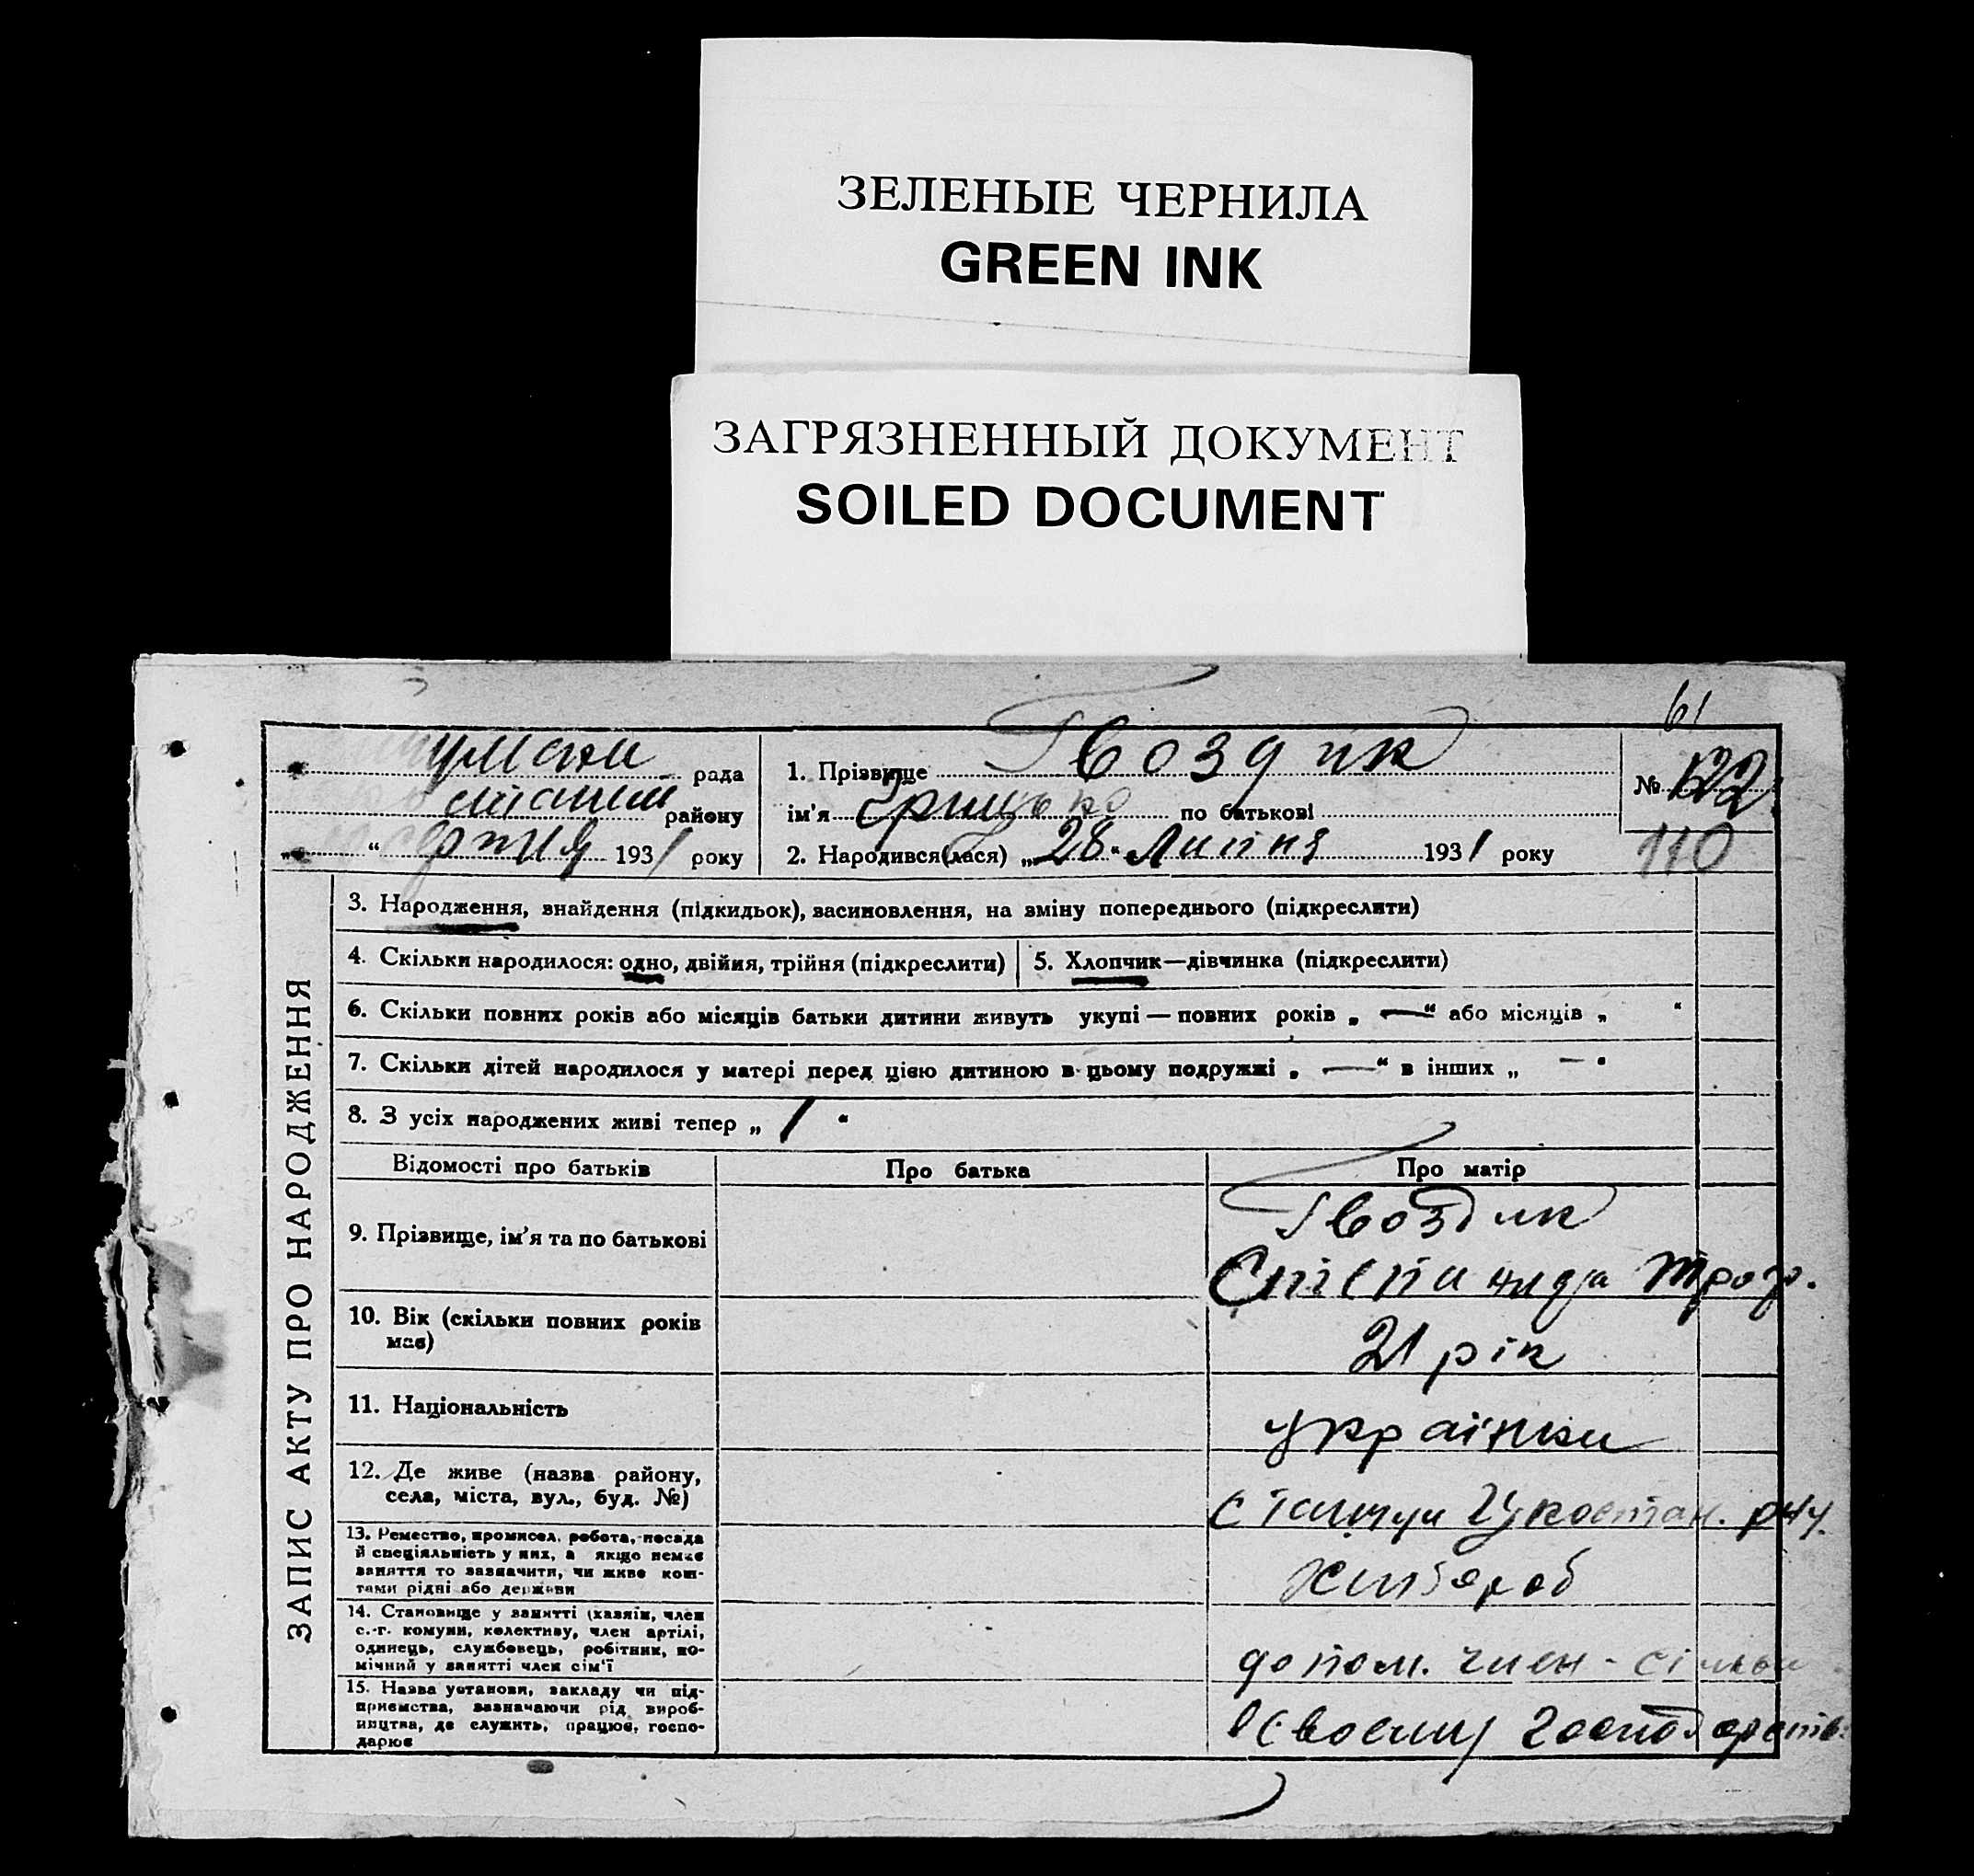 ЗЕЛЕНЫЕ ЧЕРНИЛА
GREEN INK
ЗАГРЯЗНЕННЫЙ ДОКУМЕНТ
SOILED DOCUMENT
61
рада
району
193 1 року
1. Прізвище Гвоздик
ім'я Грицько по батькові
2. Народився(лася) „28“ Липня 1931 року
№ 122
110
ЗАПИС АКТУ ПРО НАРОДЖЕННЯ
3. Народження, знайдення (підкидьок), засиновлення, на зміну попереднього (підкреслити)
4. Скільки народилося: одно, двійня, трійня (підкреслити)
5. Хлопчик—дівчинка (підкреслити)
6. Скільки повних років або місяців батьки дитини живуть укупі — повних років „ — “ або місяців „ “
7. Скільки дітей народилося у матері перед цією дитиною в цьому подружжі „ — “ в інших „ — “
8. З усіх народжених живі тепер „ 1 “
Відомості про батьків
Про батька
Про матір
9. Прізвище, ім'я та по батькові
Гвоздик
10. Вік (скільки повних років
має)
21 рік
11. Національність
українка
12. Де живе (назва району,
села, міста, вул., буд. №)
13. Ремество, промисел, робота, посада
й спеціяльність у них, а якщо немає
заняття то зазначити, чи живе кош-
тами рідні або держави
хлібороб
14. Становище у занятті (хазяїн, член
с.-г. комуни, колективу, член артілі,
одинець, службовець, робітник, по-
мічний у занятті член сім'ї
допом. член
15. Назва установи, закладу чи під-
приємства, зазначаючи рід вироб-
ництва, де служить, працює, госпо-
дарює
в своєму господарстві